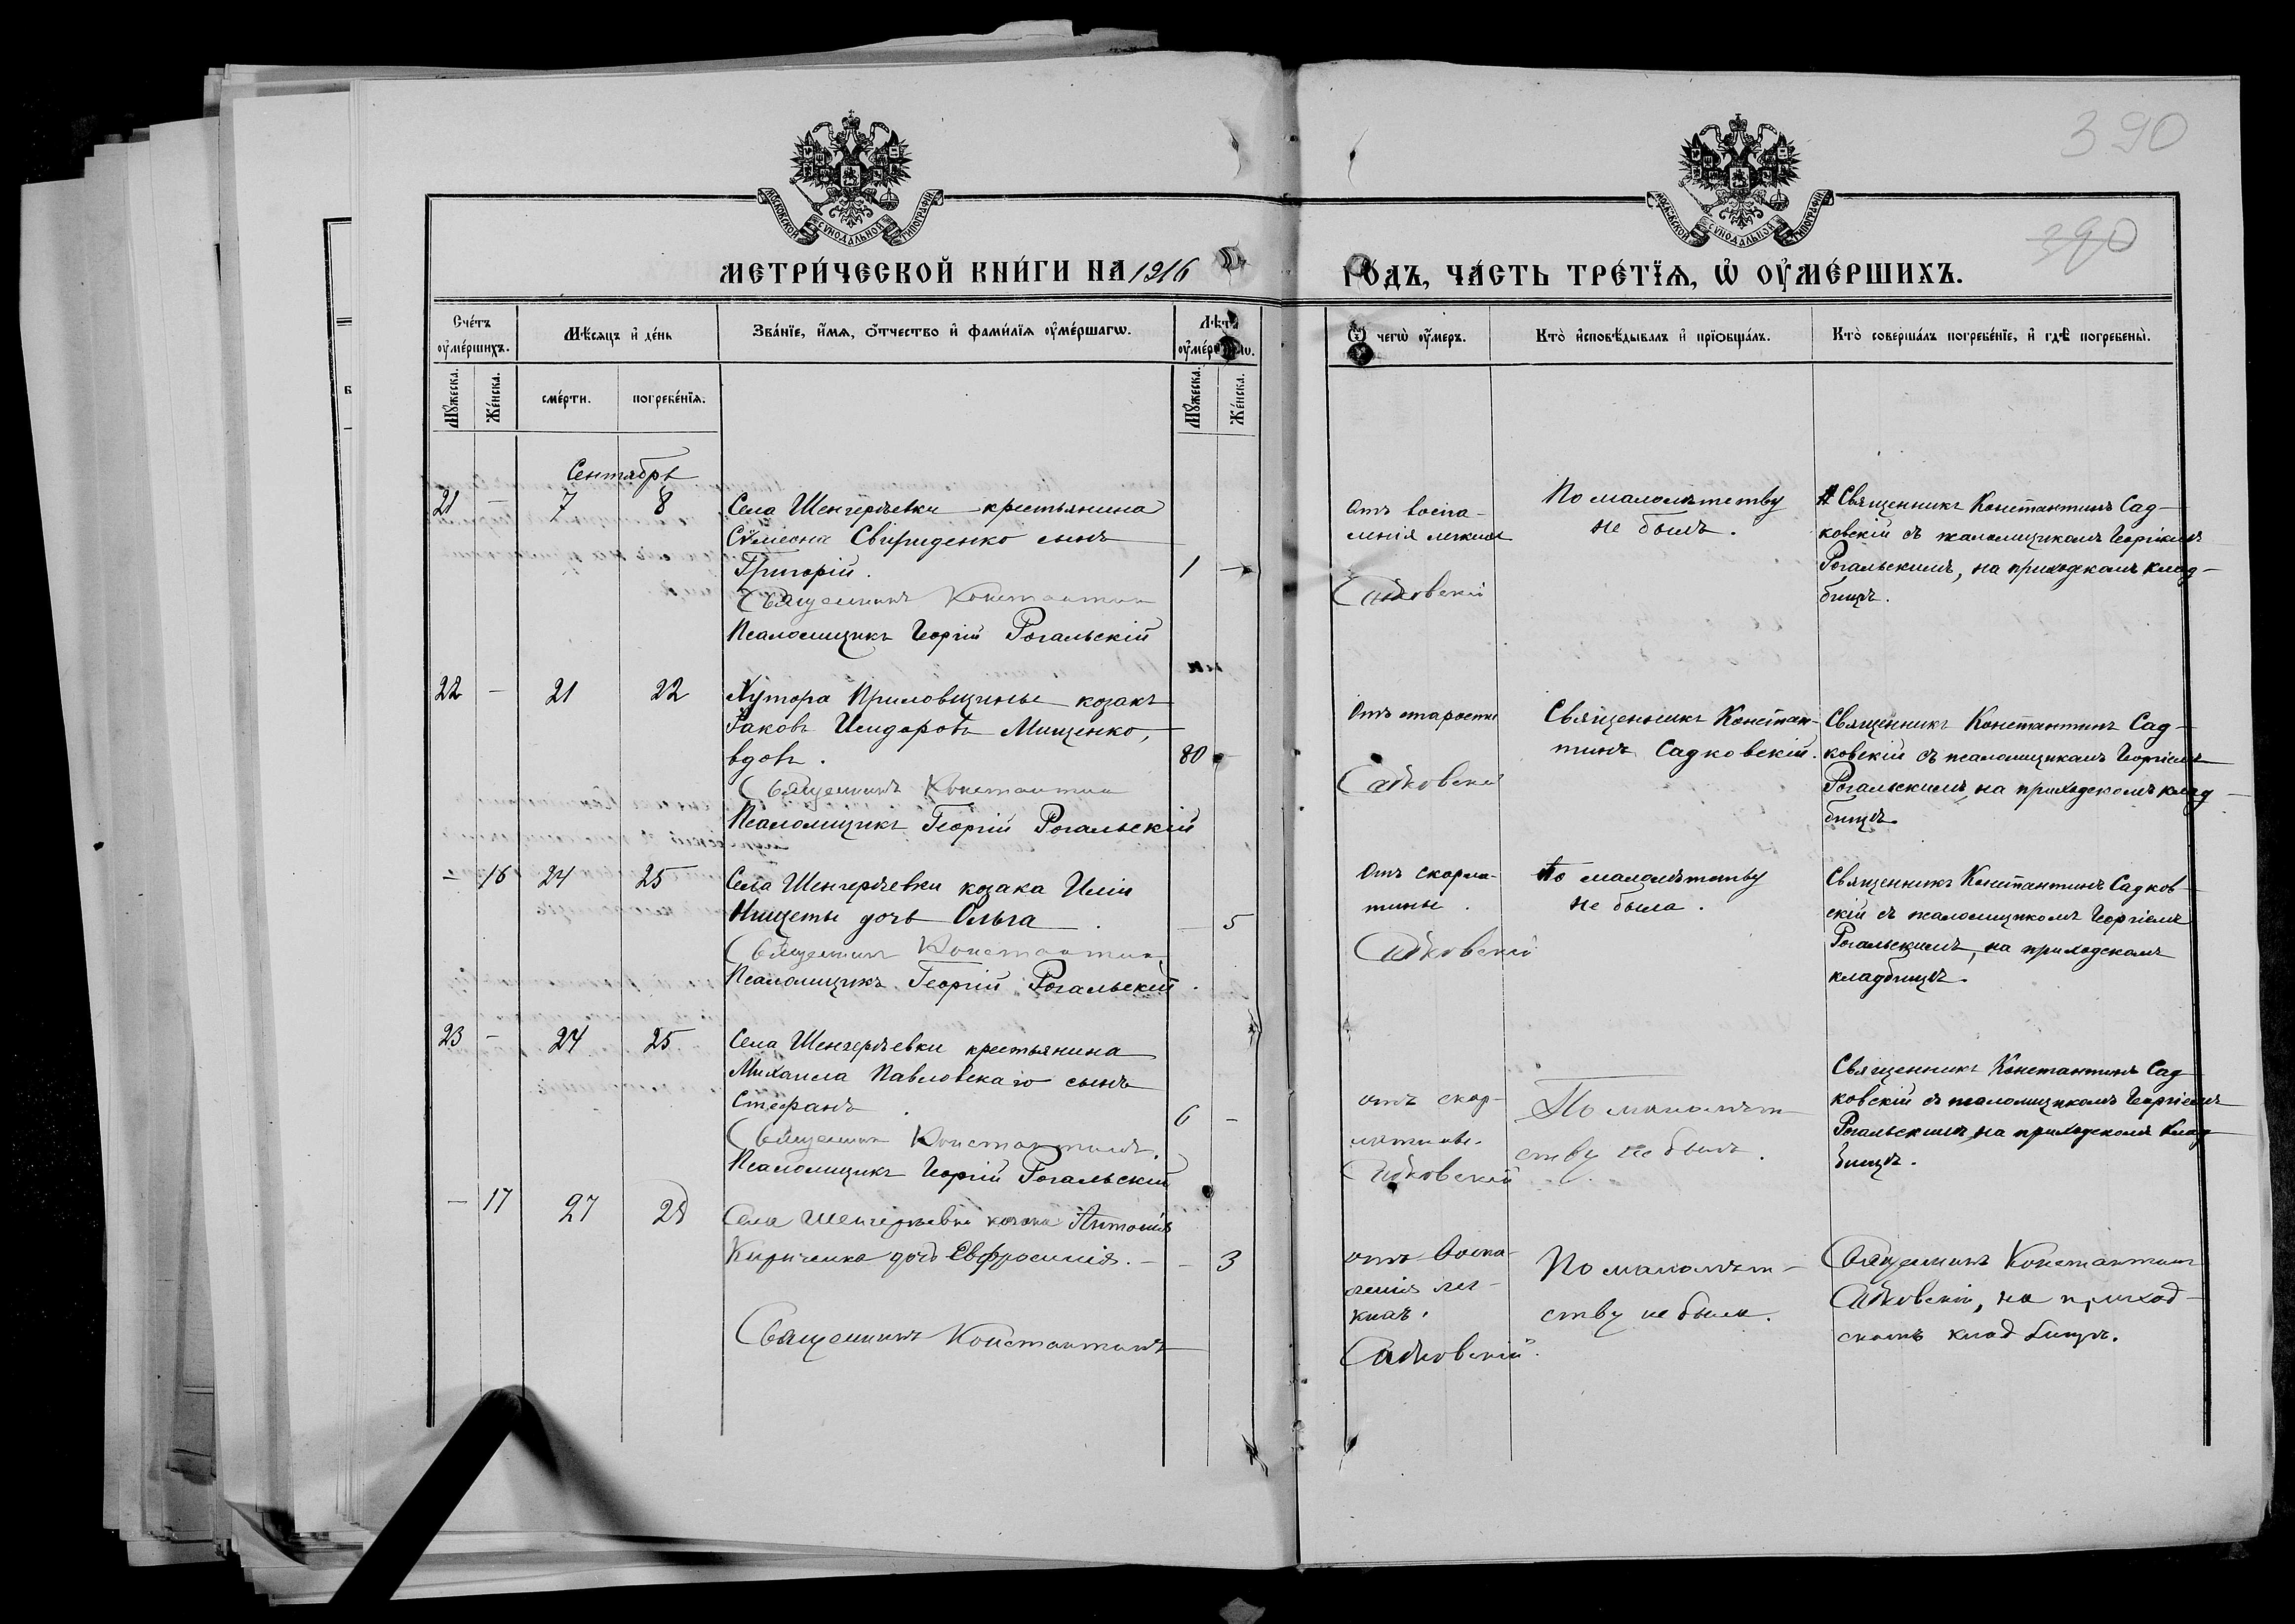 390
390
МОСКОВСКОЙ СУНОДАЛЬНОЙ ТИПОГРАФІИ
МОСКОВСКОЙ СУНОДАЛЬНОЙ ТИПОГРАФІИ
МЕТРИ́ЧЕСКОЙ КНИ́ГИ НА 1916 ГО́ДЪ, ЧА́СТЬ ТРЕ́ТЇѦ, Ѡ҆ ОУ҆МЕ́РШИХЪ.
Сче́тъ оу҆ме́ршихъ.
Мѣ́сяцъ и҆ де́нь
Зва́нїе, и҆́мѧ, ѻ҆́тчество и҆ фами́лїѧ оу҆ме́ршагѡ.
Лѣ́та оу҆ме́ршагѡ.
Ѿ чегѡ̀ оу҆́меръ.
Кто̀ и҆сповѣ́дывалъ и҆ прїѡбща́лъ.
Кто̀ соверша́лъ погребе́нїе, и҆ гдѣ̀ погребены̀.
Мꙋ́жеска.
Же́нска.
сме́рти.
погребе́нїѧ.
Мꙋ́жеска.
Же́нска.
Сентябрь
21 – 7 8
Села Шенгерѣевки крестьянина
Сѵмеона Свириденко сынъ
Григорій. 1 –
Священникъ Константинъ
Псаломщикъ Георгій Рогальскій
Отъ воспа-
ленія легкихъ
Садковскій
По малолѣтству
не былъ.
Священникъ Константинъ Сад-
ковскій съ псаломщикомъ Георгіемъ
Рогальскимъ, на приходскомъ клад-
бищѣ.
22 – 21 22
Хутора Приловщины козакъ
Іаковъ Исидоровъ Мищенко,
вдовъ. 80 –
Священникъ Константинъ
Псаломщикъ Георгій Рогальскій
Отъ старости
Садковскій
Священникъ Констан-
тинъ Садковскій.
Священникъ Константинъ Сад-
ковскій съ псаломщикомъ Георгіемъ
Рогальскимъ, на приходскомъ клад-
бищѣ.
– 16 24 25
Села Шенгерѣевки козака Иліи
Нищеты дочь Ольга. – 5
Священникъ Константинъ
Псаломщикъ Георгій Рогальскій.
Отъ скарла-
тины.
Садковскій
По малолѣтству
не была.
Священникъ Константинъ Садков-
скій съ псаломщикомъ Георгіемъ
Рогальскимъ, на приходскомъ
кладбищѣ.
23 – 24 25
Села Шенгерѣевки крестьянина
Михаила Павловскаго сынъ
Стефанъ. 6 –
Священникъ Константинъ
Псаломщикъ Георгій Рогальскій
отъ скар-
латины.
Садковскій
По малолѣт-
ству не былъ.
Священникъ Константинъ Сад-
ковскій съ псаломщикомъ Георгіемъ
Рогальскимъ, на приходскомъ клад-
бищѣ.
– 17 27 28
Села Шенгерѣевки козака Антонія
Кириченка дочь Евфросинія. – – 3
Священникъ Константинъ
отъ воспа-
ленія лег-
кихъ.
Садковскій.
По малолѣт-
ству не была.
Священникъ Константинъ
Садковскій, на приход-
скомъ кладбищѣ.